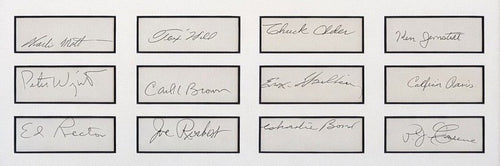 Charlie Mott
Tex Hill
Chuck Older
Ken Jernstedt
Peter Wright
Carl K Brown
Erik Shilling
Ed Rector
Joe Rosbert
Charlie Bond